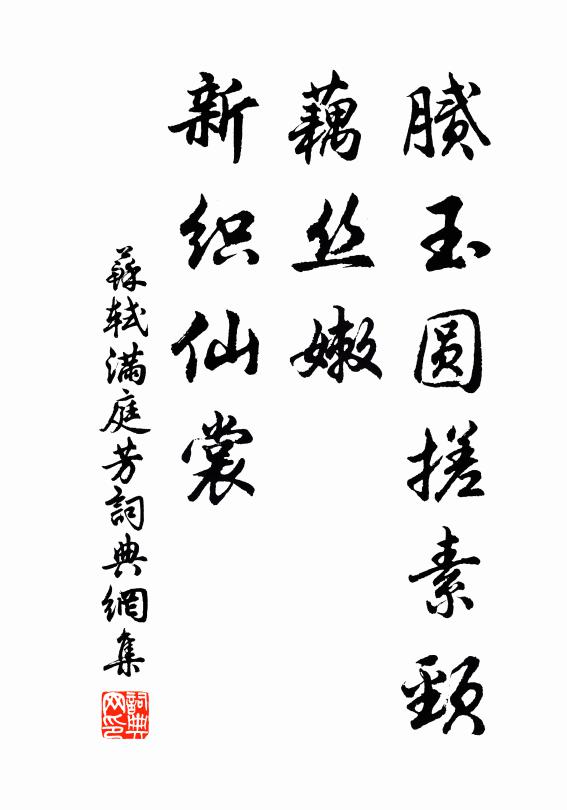 腻玉圆搓素颈
藕丝嫩
新织仙裳
蘇轼满庭芳詞典網集
詞典网印